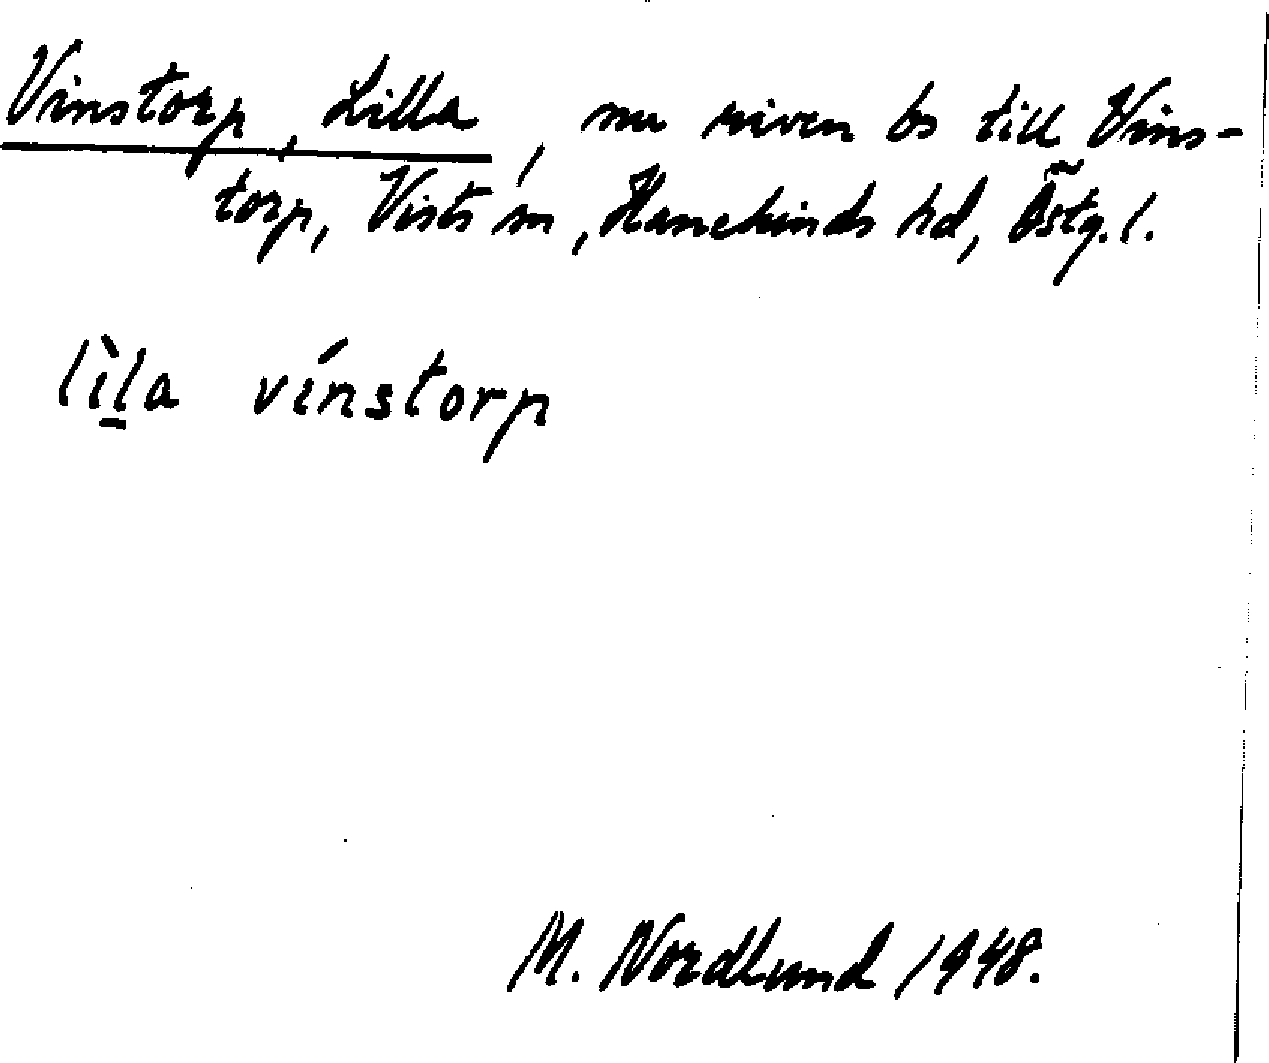 Vinstorp, Lilla, nu riven bs till Vins-
torp, Vists sn, Hanekinds hd, Östg. l.
lìl̲a vínstorp
M. Nordlund 1948.